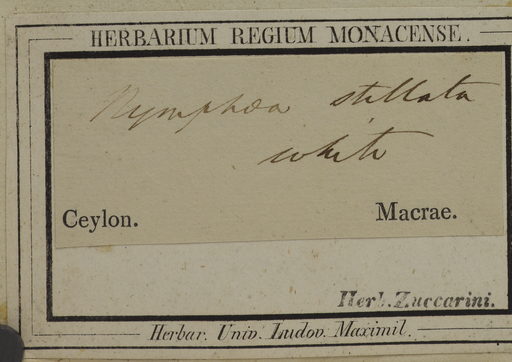 HERBARIUM REGIUM MONACENSE.
Nymphœa stellata
white
Ceylon. Macrae.
Herb. Zuccarini.
Herbar. Univ. Ludov. Maximil.